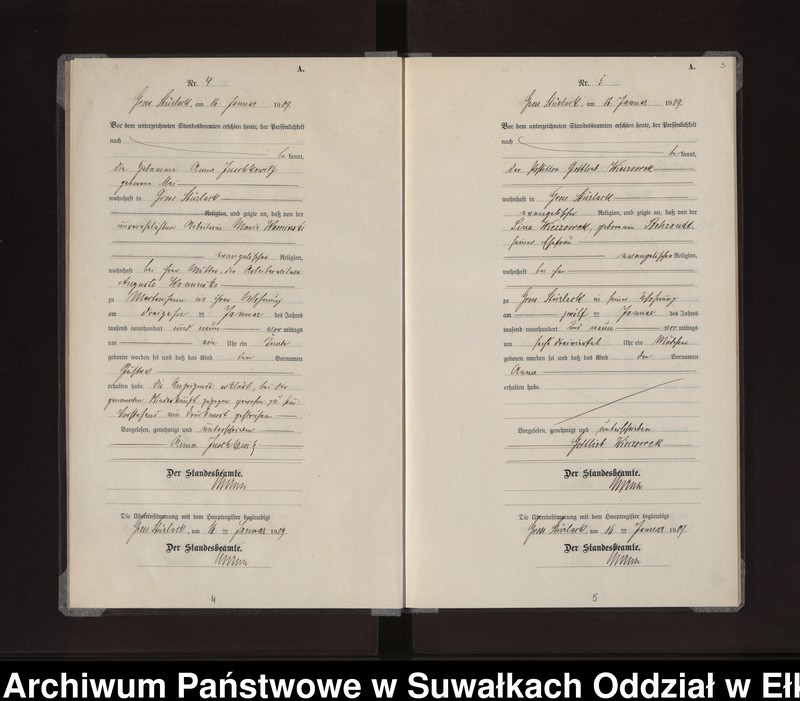 A.
Nr. 4
Gross Stürlack, am 16 Januar 1909.
Vor dem unterzeichneten Standesbeamten erschien heute, der Persönlichkeit
nach
be kannt,
die Hebamme Anna
geborene
wohnhaft in Gross Stürlack
Religion, und zeigte an, daß von der
unverehelichten Arbeiterin Marie Kaminski
evangelischer Religion,
wohnhaft bei ihrer Mutter, die
Auguste Kaminski
zu in ihrer Wohnung
am dreizehn ten Januar des Jahres
tausend neunhundert und neun vor mittags
um ein Uhr ein Knabe
geboren worden sei und daß das Kind den Vornamen
Gustav
erhalten habe. Die Anzeigende erklärt, bei der
genannten Niederkunft zugegen gewesen zu sein.
Vorstehend ein Druckwort gestrichen
Vorgelesen, genehmigt und unterschrieben
Anna
Der Standesbeamte.
Die Übereinstimmung mit dem Hauptregister beglaubigt
Gross Stürlack, am 16 ten Januar 1909.
Der Standesbeamte.
4
A.
3
Nr. 5
Gross Stürlack, am 16 Januar 1909.
Vor dem unterzeichneten Standesbeamten erschien heute, der Persönlichkeit
nach
be kannt,
der Postillon Gottlieb Wieczorrek
wohnhaft in Gross Stürlack
evangelischer Religion, und zeigte an, daß von der
Lina Wieczorrek, geborenen
seiner Ehefrau
evangelischer Religion,
wohnhaft bei ihm
zu Gross Stürlack in seiner Wohnung
am zwölf ten Januar des Jahres
tausend neunhundert und neun vor mittags
um dreiviertel Uhr ein Mädchen
geboren worden sei und daß das Kind den Vornamen
Anna
erhalten habe.
Vorgelesen, genehmigt und unterschrieben
Gottlieb Wieczorrek
Der Standesbeamte.
Die Übereinstimmung mit dem Hauptregister beglaubigt
Gross Stürlack, am 16 ten Januar 1909.
Der Standesbeamte.
5
Archiwum Państwowe w Suwałkach Oddział w Ełk